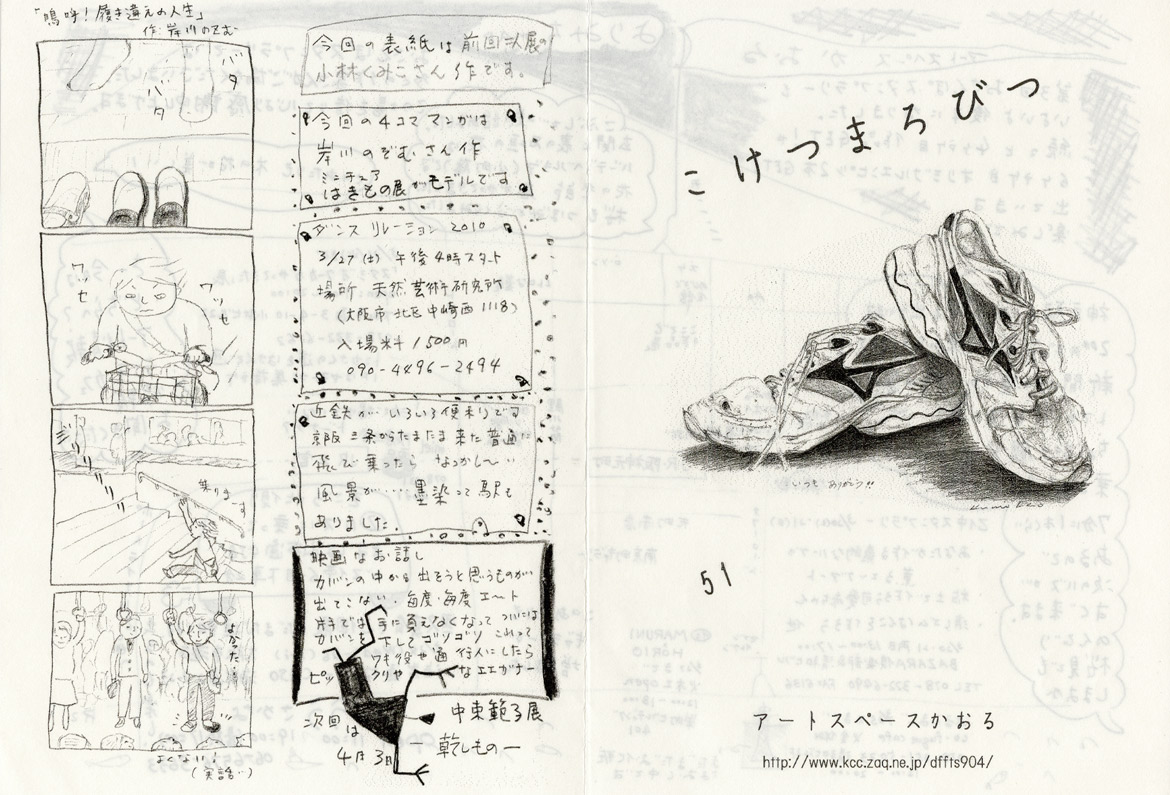 「嗚呼!履き違えの人生」
作:岸川のぞむ
バタ
バタ
ワッセ
ワッセ
乗りまーす
よかった…
よくない!
(実話…)
今回の表紙は前回二人展の
小林くみこさん作です。
今回の4コママンガは
岸川のぞむさん作
ミニチュア
はきもの展がモデルです
ダンス リレーション 2010
3/27(土) 午後4時スタート
場所 天然芸術研究所
(大阪市北区中崎西1118)
入場料1500円
090-4496-2494
近鉄がいろいろ便利です
京阪三条からたまたま来た普通に
飛んで乗ったら なつかし〜い
風景が… 墨染って駅も
ありました.
映画なお話し
カバンの中から出そうと思うものが
出てこない. 毎度・毎度 エート
片手では手に負えなくなって ついには
カバンを下してゴソゴソ これって
ワキ役や通行人にしたら
ピッタリや なエピソード
次回は
4月3日
中東範子展
ー乾しものー
こけつまろびつ
いつも ありがとう!!
Kumi Eko
51
アートスペースかおる
http://www.kcc.zaq.ne.jp/dffts904/